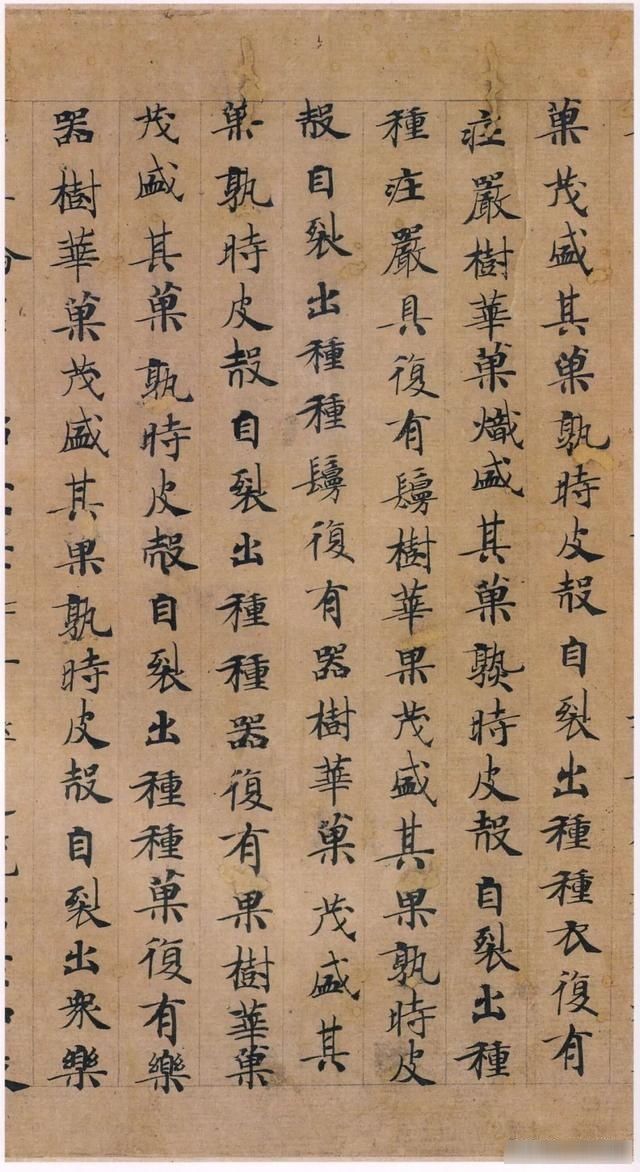 菓茂盛其菓孰時皮殼自裂出種種衣復有
庄嚴樹華菓熾盛其菓熟時皮殼自裂出種
種庄嚴具復有鬘樹華果茂盛其果孰時皮
殼自裂出種種鬘復有器樹華菓茂盛其
菓孰時皮殼自裂出種種器復有果樹華菓
茂盛其菓孰時皮殼自裂出種種菓復有樂
器樹華菓茂盛其果孰時皮殼自裂出眾樂